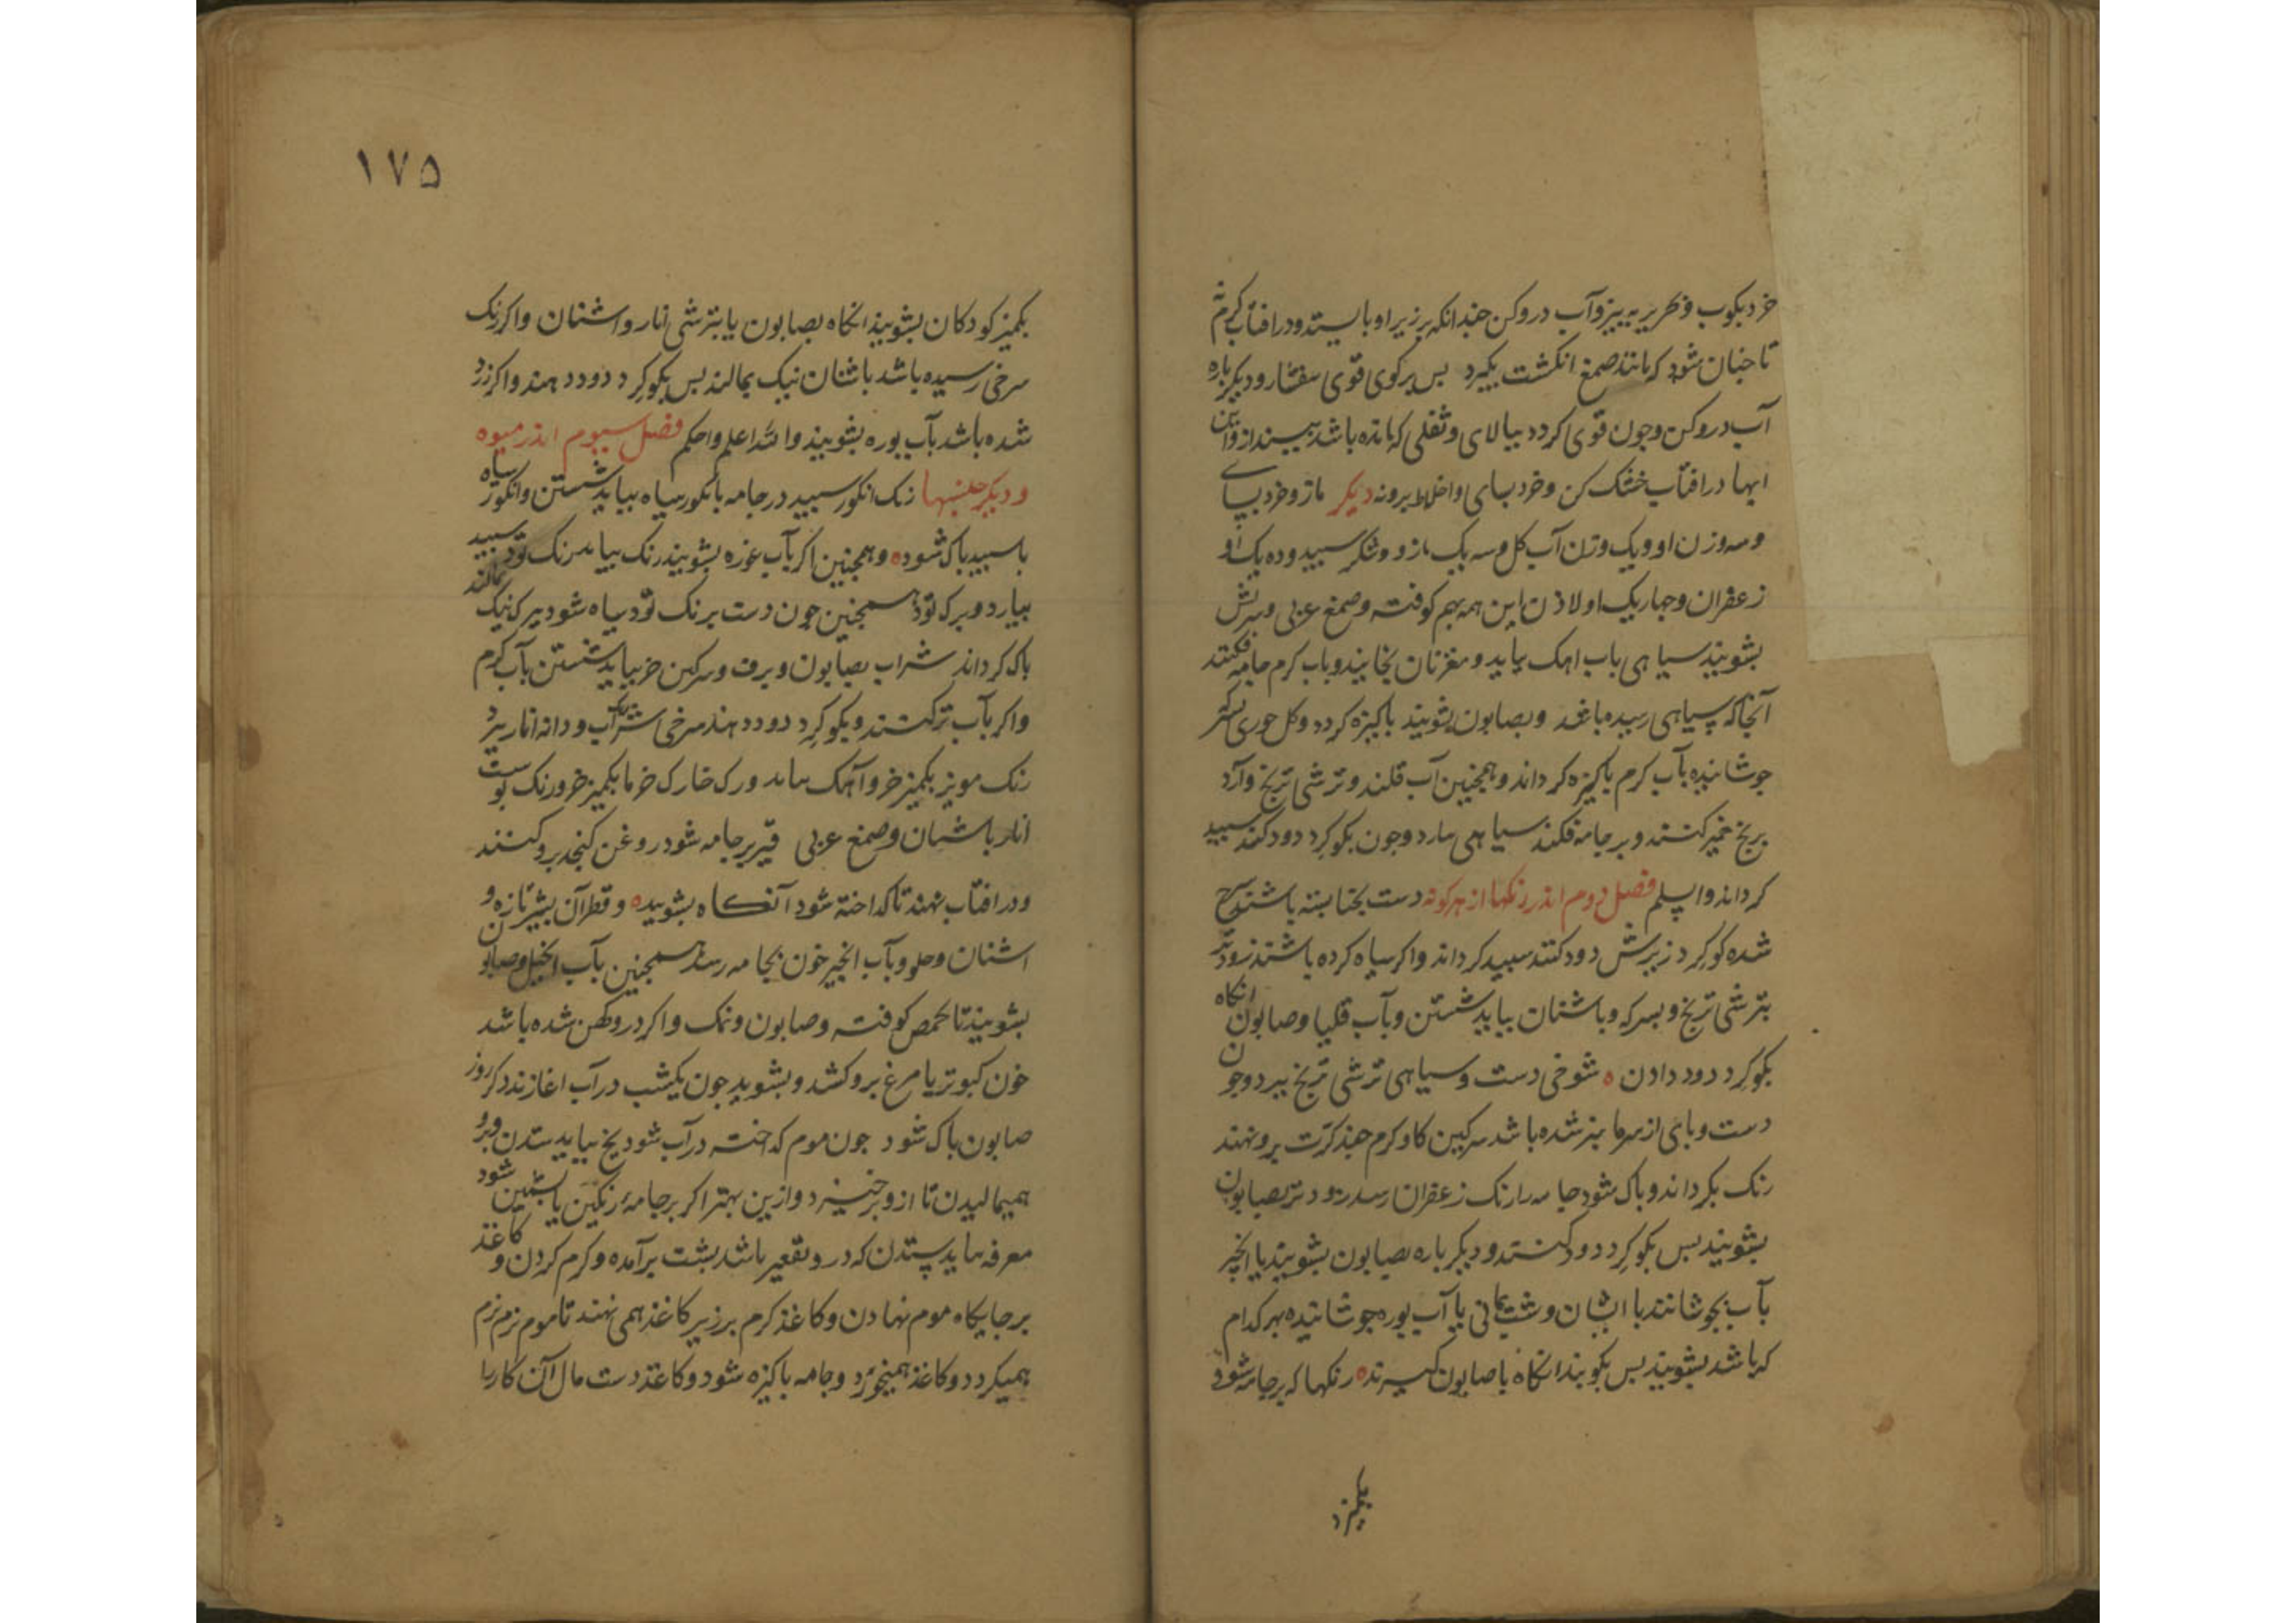 خرد بکوب و بحریر به بیز و آب درو کن چندانکه بر زیر او بایستد و در افتاب کرم نه
تا جنان شود که مانند صمغ انکشت بکیرد بس برکوی قوی بیفشار و دیکر باره
آب درو کن و جون قوی کردد بیالای و ثفلی که مانده باشد بینداز و این
ابها در افتاب خشک کن و خرد بسای و اخلاط برو نه دیکر مازو خرد بسای
و سه وزن او و یک وزن آب کل و سه یک مازو و شکر سبید و ده یک او
زعفران و جهاریک او لاذن این همه بهم کوفته و صمغ عربی و سرش
بشویند سیاهی باب اهک بیاید و مغز نان بخایند و باب کرم جامه فکنند
آنجا که سیاهی رسیده باشد و بصابون بشویند باکیزه کردد و کل خوری
جوشانیده بآب کرم باکیزه کرداند و همجنین آب قلند و ترشی ترنج و آرد
برنج خمیر کنند و بر جامه فکند سیاهی ببارد و جون بکوکرد دود کنند سبید
کرداند و اسلم فصل دوم اندر رنکها از هر کونه دست بحنا بسته باشند سرخ
شده کوکرد زیرش دود کنند سبید کرداند و اکر سیاه کرده باشند زودتر
بترشی ترنج و بسرکه و باشنان بباید شستن و بآب قلیا و صابون انکاه
بکوکرد دود دادن ه شوخی دست و سیاهی ترشی ترنج ببرد و جون
دست و بای از سرما سبز شده باشد سرکین کاو کرم جند کرت برو نهند
رنک بکرداند و باک شود جامه را رنک زعفران رسد زودتر بصابون
بشویند بس بکوکرد دود کنند و دیکر باره بصابون بشویند یا انجیر
بآب بجوشانند با اشنان و شب یمانی یا آب بوره جوشانیده بهر کدام
که باشد بشویند بس بکوبند انکاه با صابون کیرند ه رنکها که بر جامه شود
بکمیز
۱۷۵
بکمیز کودکان بشویند انکاه بصابون یا بترشی انار و اشنان و اکر رنک
سرخی رسیده باشد باشنان نیک بمالند بس بکوکرد دود دهند و اکر زرد
شده باشد بآب بوره بشویند والله اعلم و احکم فصل سیوم اندر میوه
و دیکر جنسها رنک انکور سبید در جامه بانکور سیاه بباید شستن و انکور سیاه
با سبید باک شود ه و همجنین اکر بآب غوره بشویند رنک بباید رنک تود سبید
بیارد و برک تود همجنین جون دست برنک تود سیاه شود ببرک نیک بمالند
باک کرداند شراب بصابون و برف و سرکین خر بباید شستن بآب کرم
و اکر بآب تر کنند و بکوکرد دود دهند سرخی شراب و دانه انار ببرد
رنک مویز بکمیز خر و آهک بباید و رک خارک خرما بکمیز خر و رنک بوست
انار باشنان و صمغ عربی قیر بر جامه شود روغن کنجد برو کنند
و در افتاب نهند تا کداخته شود آنکاه بشویند ه و قطران بشیر تازه و
اشنان و حلو و بآب انجیر خون بجامه رسد همجنین بآب و صابون
بشویند تا کوفته و صابون و نمک و اکر درو کهن شده باشد
خون کبوتر یا مرغ برو کشد و بشوید جون یکشب در آب اغازند دکر روز
صابون باک شود جون موم کداخته در آب شود یخ بباید ستدن و برو
همیمالیدن تا ازو برخیزد و ازین بهتر اکر بر جامهٔ رنکین یا بشمین شود
مغرفه بباید ستدن که درو تقعیر باشد بشت برآمده و کرم کردن و کاغذ
بر جایکاه موم نهادن و کاغذ کرم بر زیر کاغذ همی نهند تا موم نرم نرم
همیکردد و کاغذ همیخورد و جامه باکیزه شود و کاغذ دست مال آن کار را